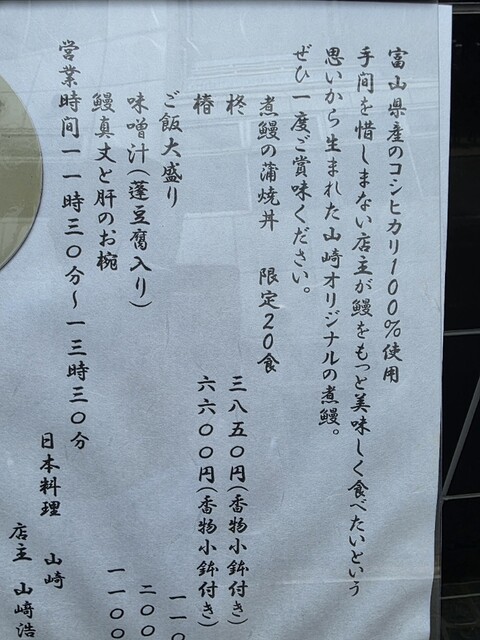 富山県産のコシヒカリ100%使用
手間を惜しまない店主が鰻をもっと美味しく食べたいという
思いから生まれた山崎オリジナルの煮鰻。
ぜひ一度ご賞味ください。
煮鰻の蒲焼丼　限定20食
柊　三八五〇円(香物小鉢付き)
椿　六六〇〇円(香物小鉢付き)
ご飯大盛り　一一〇
味噌汁(蓬豆腐入り)　二〇〇
鰻真丈と肝のお椀　一一〇〇
営業時間一一時三〇分〜一三時三〇分
日本料理　山崎
店主　山崎浩